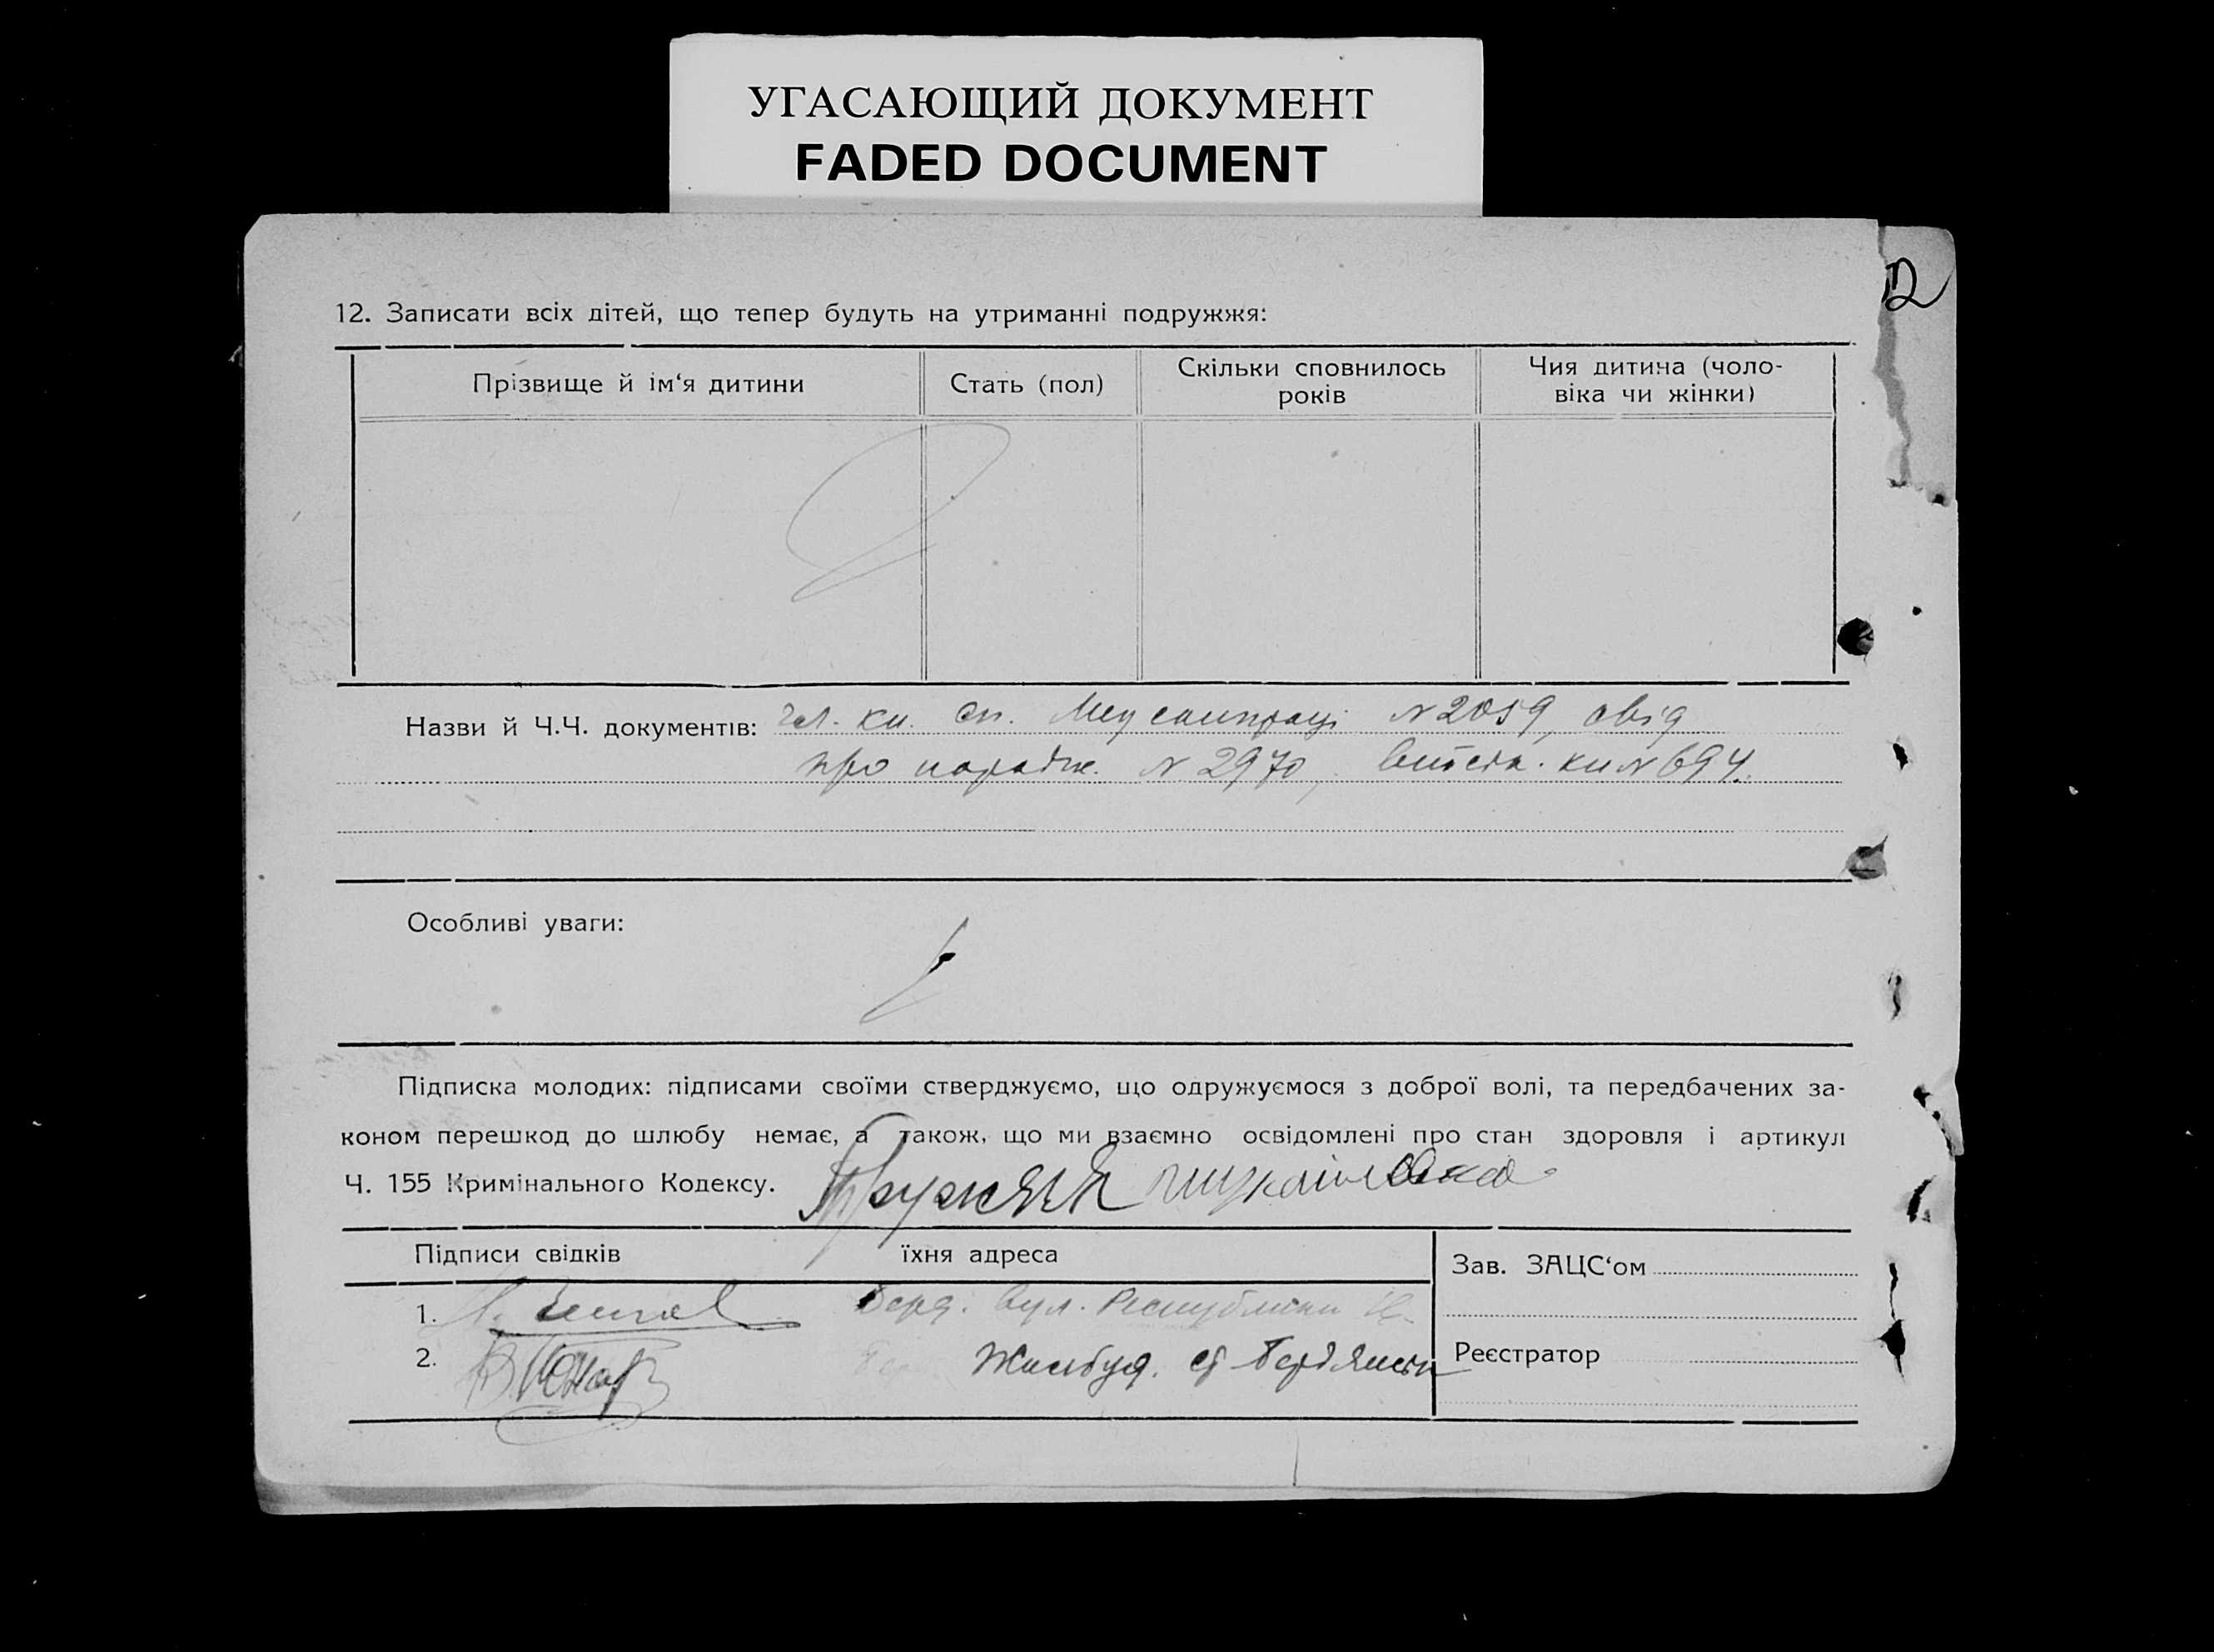 УГАСАЮЩИЙ ДОКУМЕНТ
FADED DOCUMENT
12. Записати всіх дітей, що тепер будуть на утриманні подружжя:
Прізвище й ім‘я дитини
Стать (пол)
Скільки сповнилось
років
Чия дитина (чоло-
віка чи жінки)
Назви й Ч.Ч. документів: чл. кн. сп. № 2059, свід
про народж. № 2970, кн № 694.
Особливі уваги:
Підписка молодих: підписами своїми стверджуємо, що одружуємося з доброї волі, та передбачених за-
коном перешкод до шлюбу немає, а також, що ми взаємно освідомлені про стан здоровля і артикул
Ч. 155 Кримінального Кодексу.
Підписи свідків
їхня адреса
Зав. ЗАЦС‘ом
1. Берд. вул. Республики
2. Жилбуд.
Реєстратор